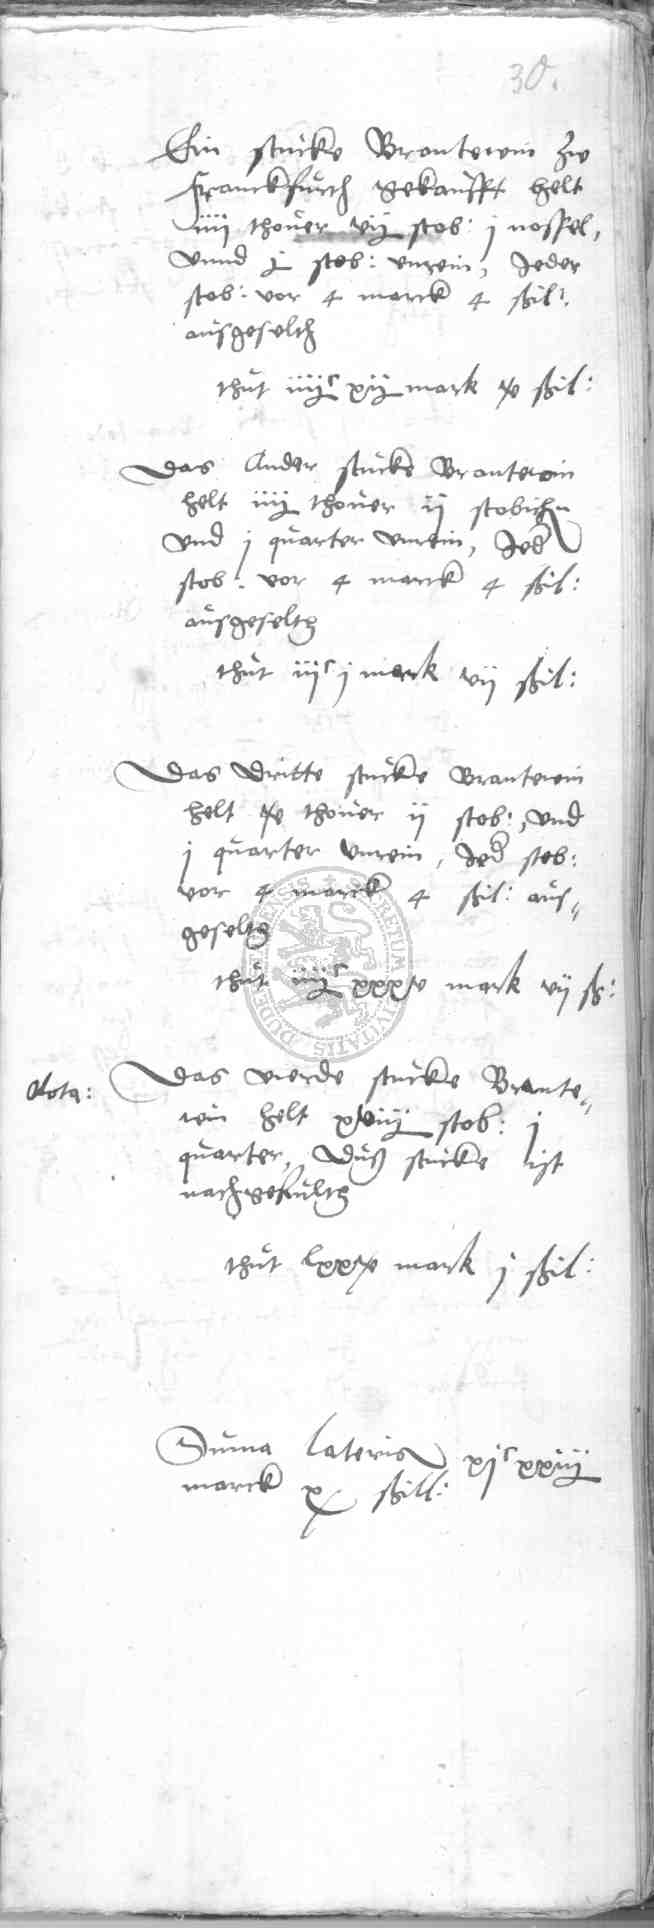 30.
Ein stucke Brantewein zw
Franckfurth gekaufft helt
iiij thouer vij stob: j nossel,
vnnd j stob: vnrein, Jeder
stob: vor 4 marck 4 ßil:
ausgeselth
thut iiijᶜ xij mark ßil:
Das Ander stucke Brantewein
helt iiij thouer ij stobichn
vnd j quarter vnrein, Jeder
stob: vor 4 marck 4 ßil:
ausgeselth
thut iijᶜ j marck vij ßil:
Das dritte stucke Brantewein
helt thouer ij stob:, vnd
j quarter vnrein, Jeder stob:
vor 4 marck 4 ßil: aus-
geselth
thut iiijᶜ mark vij ß:
Nota: Das vierde stucke Brante-
win helt xviij stob: j
quarter, Dus stucke ist
nachgefulth
thut mark j ßil:
Suma lateris xijᶜ xxiiij
marck x ßill: